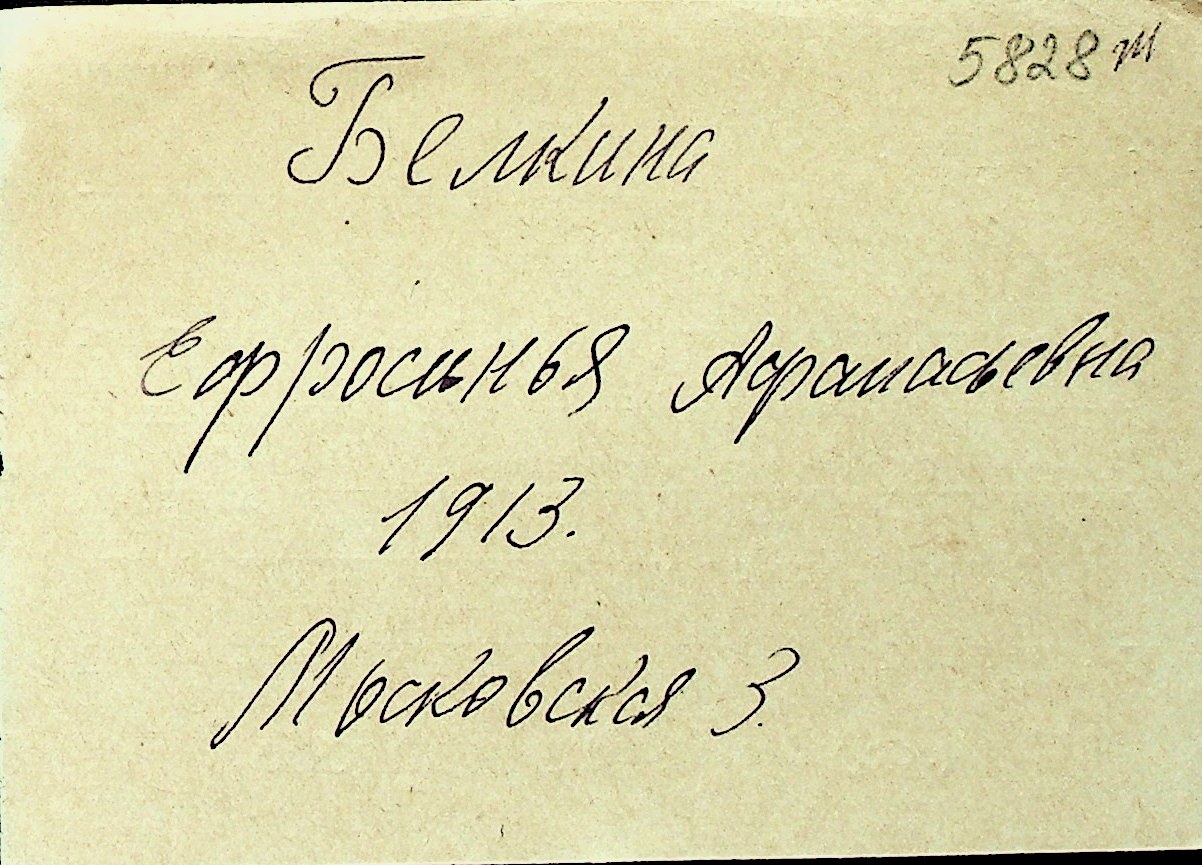 5828 м
Белкина
Ефросинья Афанасьевна
1913.
Московская 3.